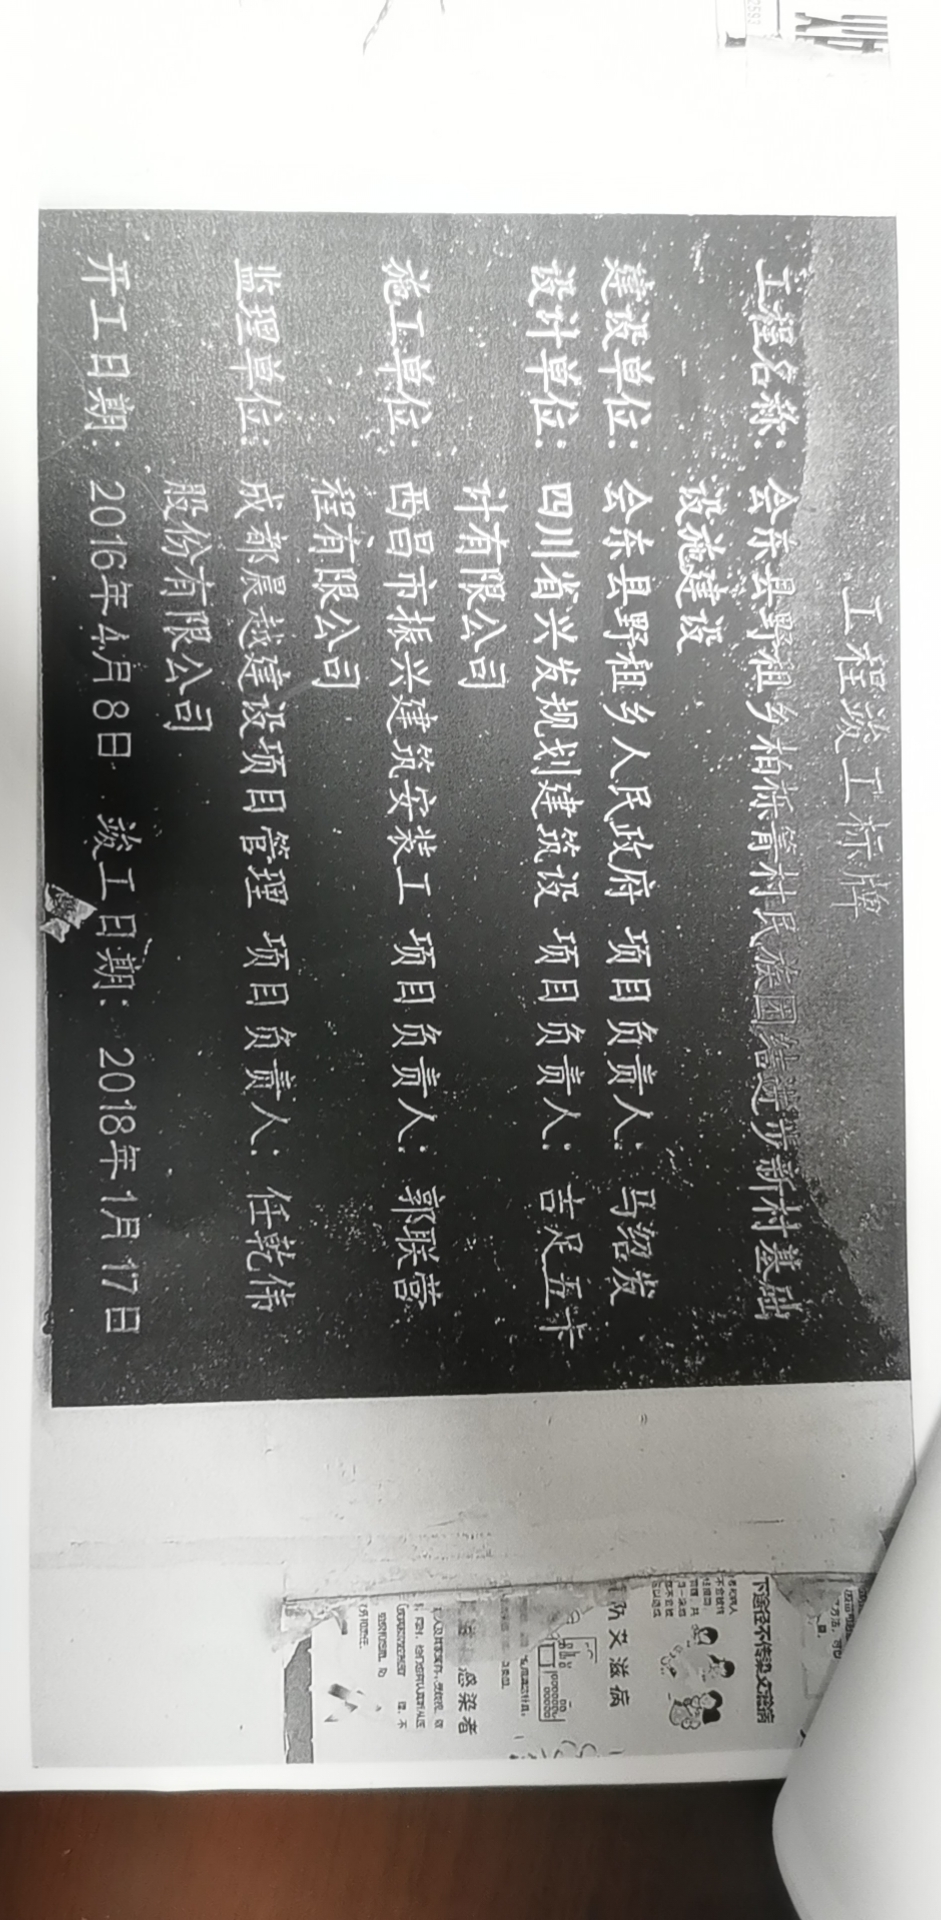 工程竣工标牌
工程名称: 会东县野租乡柏栎箐村民族团结进步新村基础
设施建设
建设单位: 会东县野租乡人民政府 项目负责人: 马绍发
设计单位: 四川省兴发规划建筑设 项目负责人: 吉足五卡
计有限公司
施工单位: 西昌市振兴建筑安装工 项目负责人: 郭联营
程有限公司
监理单位: 成都晨越建设项目管理 项目负责人: 任乾伟
股份有限公司
开工日期: 2016年4月8日 竣工日期: 2018年1月17日
下途径不传染艾滋病
防艾滋病
感染者